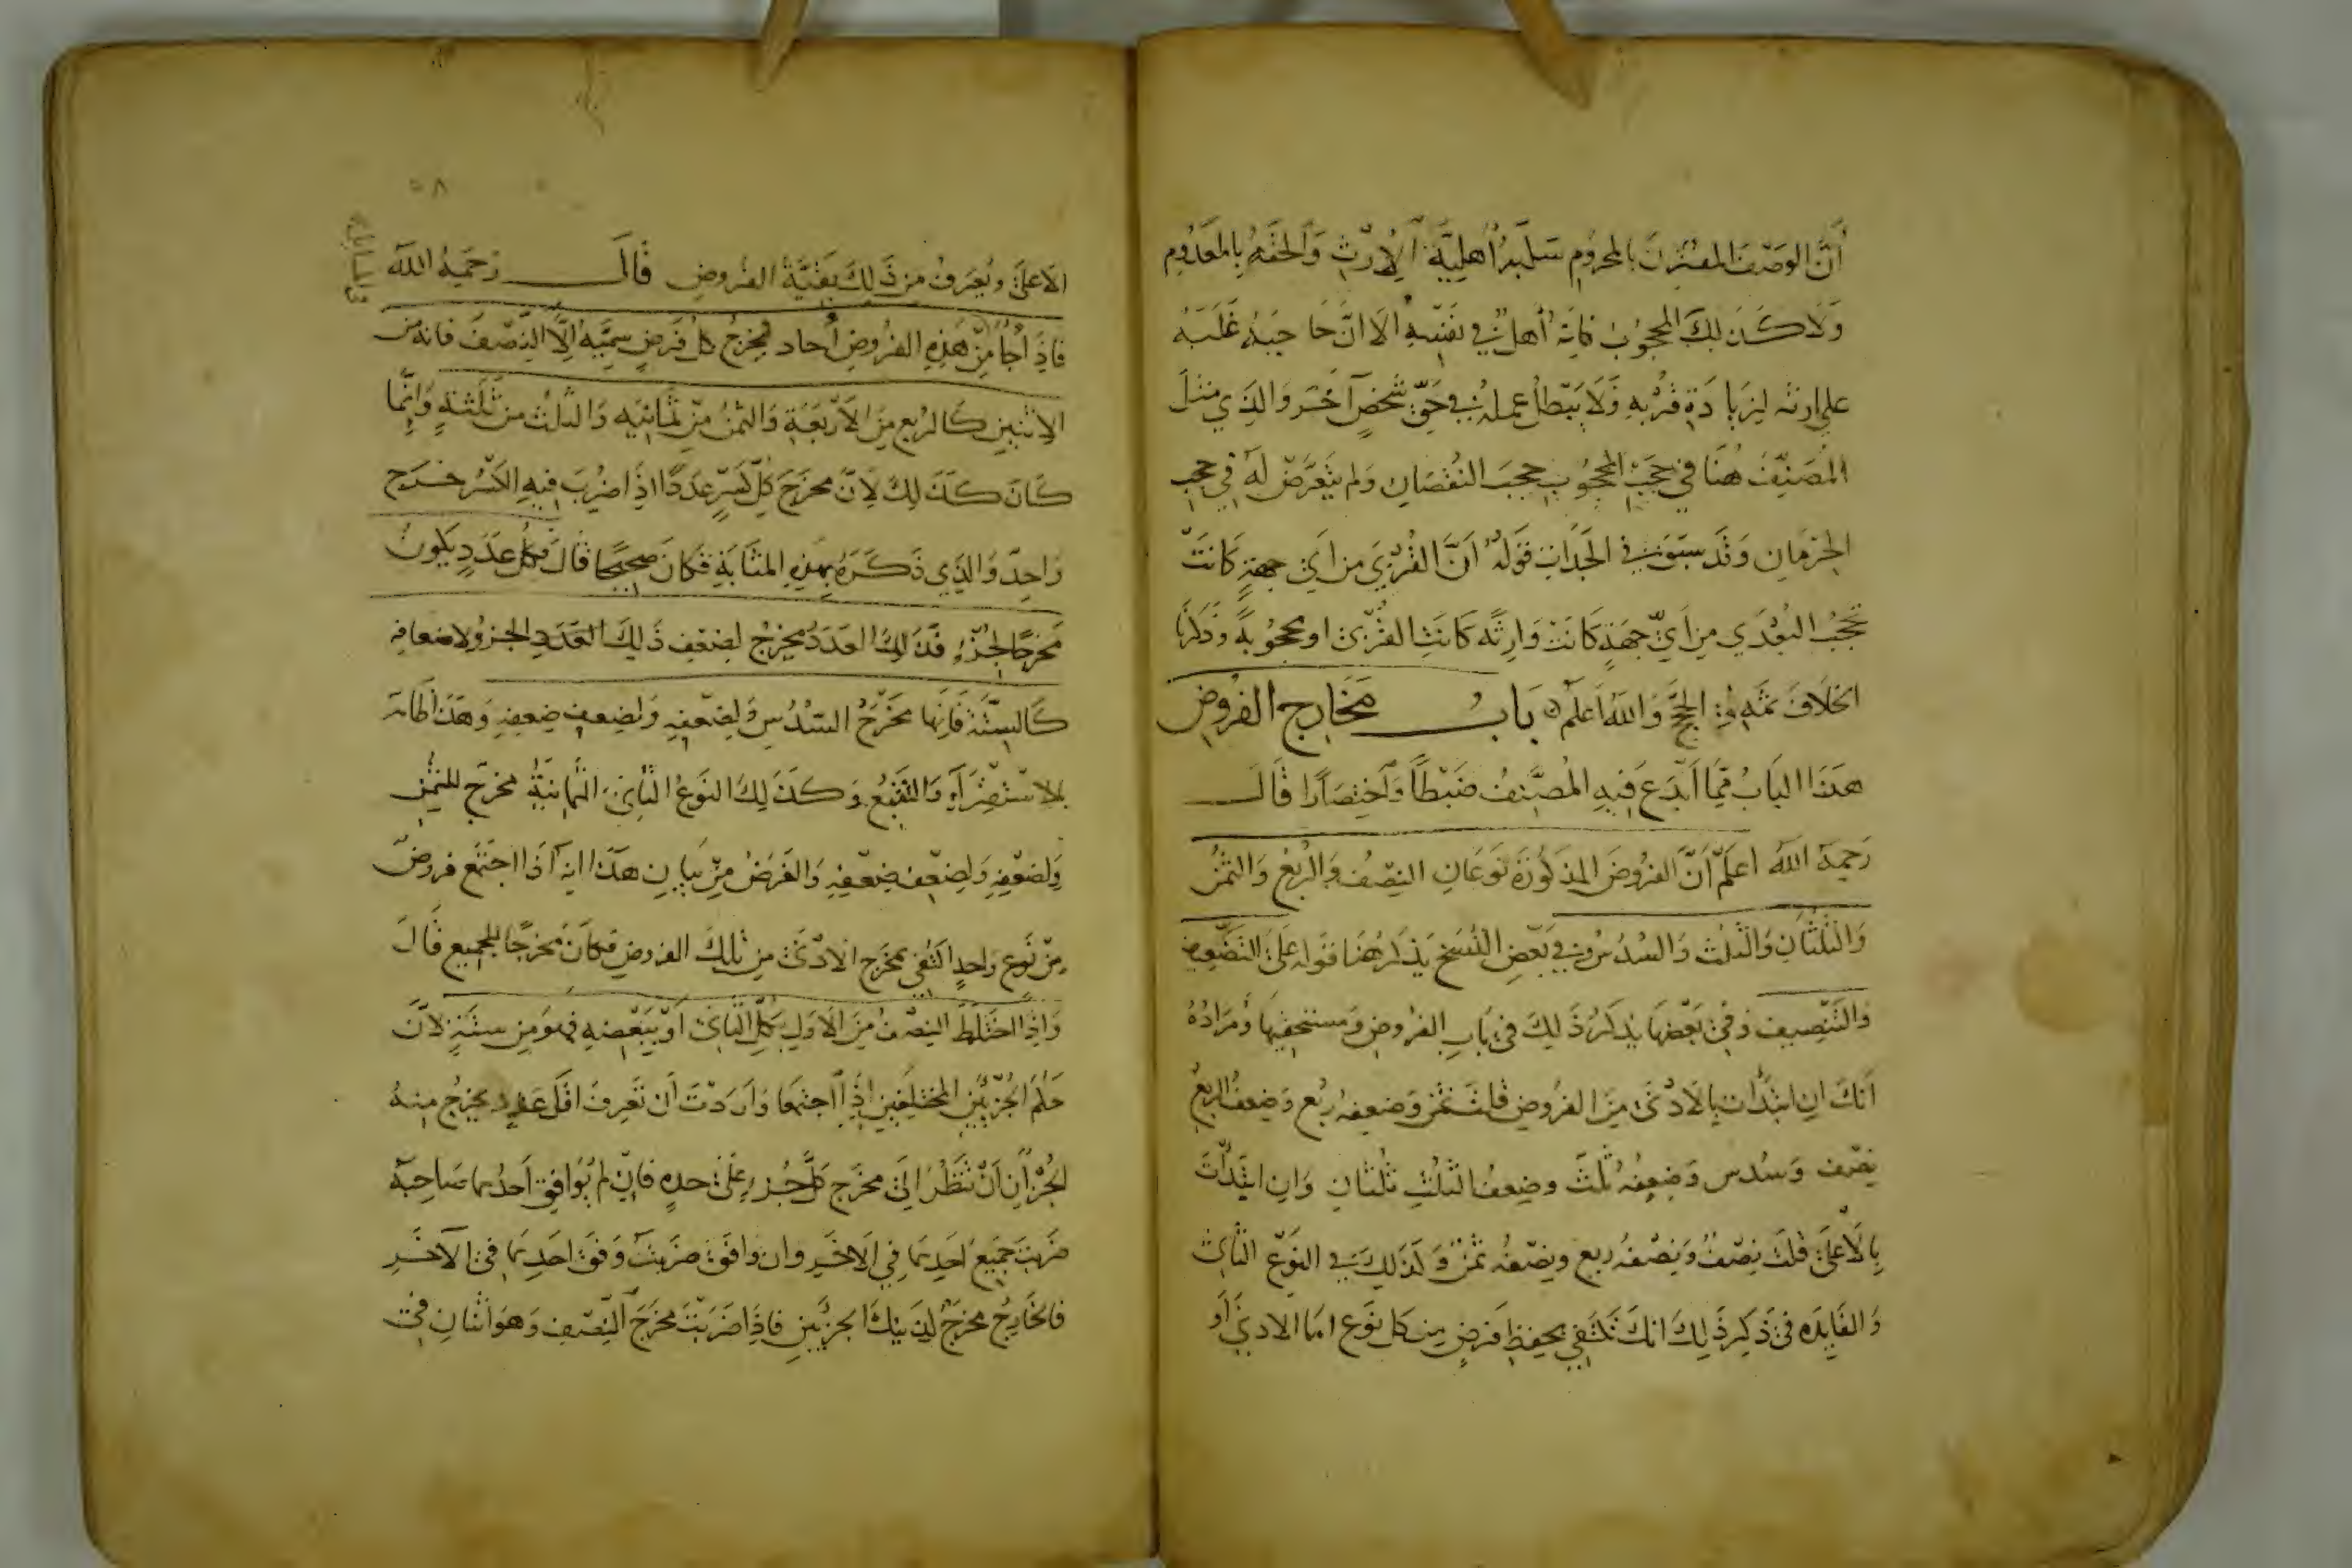 أنّ الوصف المقترن بالمحروم سلبه أهلية الإرث وألحقه بالمعدوم
ولا كذلك المحجوب فإنه أهل في نفسه الا انّ حاجبه غلبه
على ارثه لزيادة قربه ولا يبطل عمله في حق شخص آخر والذي مثل
المصنف هنا في حجب المحجوب حجب النقصان ولم يتعرض له في حجب
الحرمان وقد سبق في الجدات قوله أنّ القربى من اي جهة كانت
تحجب البعدى من أيّ جهة كانت وارثه كانت القربى او محجوبة وذكرنا
الخلاف ثمه في الحجج والله أعلم باب مخارج الفروض
هذا الباب مما أبدع فيه المصنف ضبطًا واختصارا قال
رحمه الله اعلم أنّ الفروض المذكورة نوعان النصف والربع والثمن
والثلثان والثلث والسدس وفي بعض النسخ يذكر هنا قوله على التضعيف
والتنصيف وفي بعضها يذكر ذلك في باب الفروض ومستحقيها ومراده
انك ان ابتدأت بالأدنى من الفروض قلت ثمن وضعفه ربع وضعف الربع
نصف وسدس وضعفه ثلث وضعف الثلث ثلثان وان ابتدأت
بالأعلى قلت نصف ونصفه ربع ونصفه ثمن وكذلك في النوع الثاني
والفايده في ذكر ذلك انك تكتفي بحفظ فرض من كل نوع امّا الادنى أو
٥٨
الأعلى ويعرف من ذلك بقيّة الفروض قال رحمه الله
فاذا جا من هذه الفروض أحاد فمخرج كل فرض سميّه إلّا النّصف فانه من
الاثنين كالربع من الأربعة والثمن من ثمانيه والثلث من ثلثة وإنّما
كان كذلك لأنّ مخرج كلّ كسر عددًا اذا ضرب فيه الكسر خرج
واحد والذي ذكره بهذه المثابة فكان صحيحًا قال فكل عدد يكون
مخرجًا لجزء فذلك العدد مخرج لضعف ذلك العدد الجزو ولاضعافه
كالستّة فانها مخرج السدس ولضعفه ولضعف ضعفه وهذا ظاهر
بالاستقراء والتتبع وكذلك النوع الثاني الثمانية مخرج للثمن
ولضعفه ولضعف ضعفه والغرض من بيان هذا انه اذا اجتمع فروض
من نوع واحد اكتفى بمخرج الأدنى من تلك الفروض فكان مخرجًا للجميع قال
واذا اختلط النصف من الاول بكل الثاني أو ببعضه فهو من ستة لأنّ
حكم الجزئين المختلفين إذا اجتمعا وأردت أن تعرف اقل عدد يخرج منه
الجزآن أن تنظر إلى مخرج كل جزء على حده فان لم يوافق أحدهما صاحبه
ضربت جميع احدهما في الاخر وان وافق ضربت وفق احدهما في الآخر
فالخارج مخرج لذينك الجزئين فاذا ضربت مخرج النصف وهو اثنان في